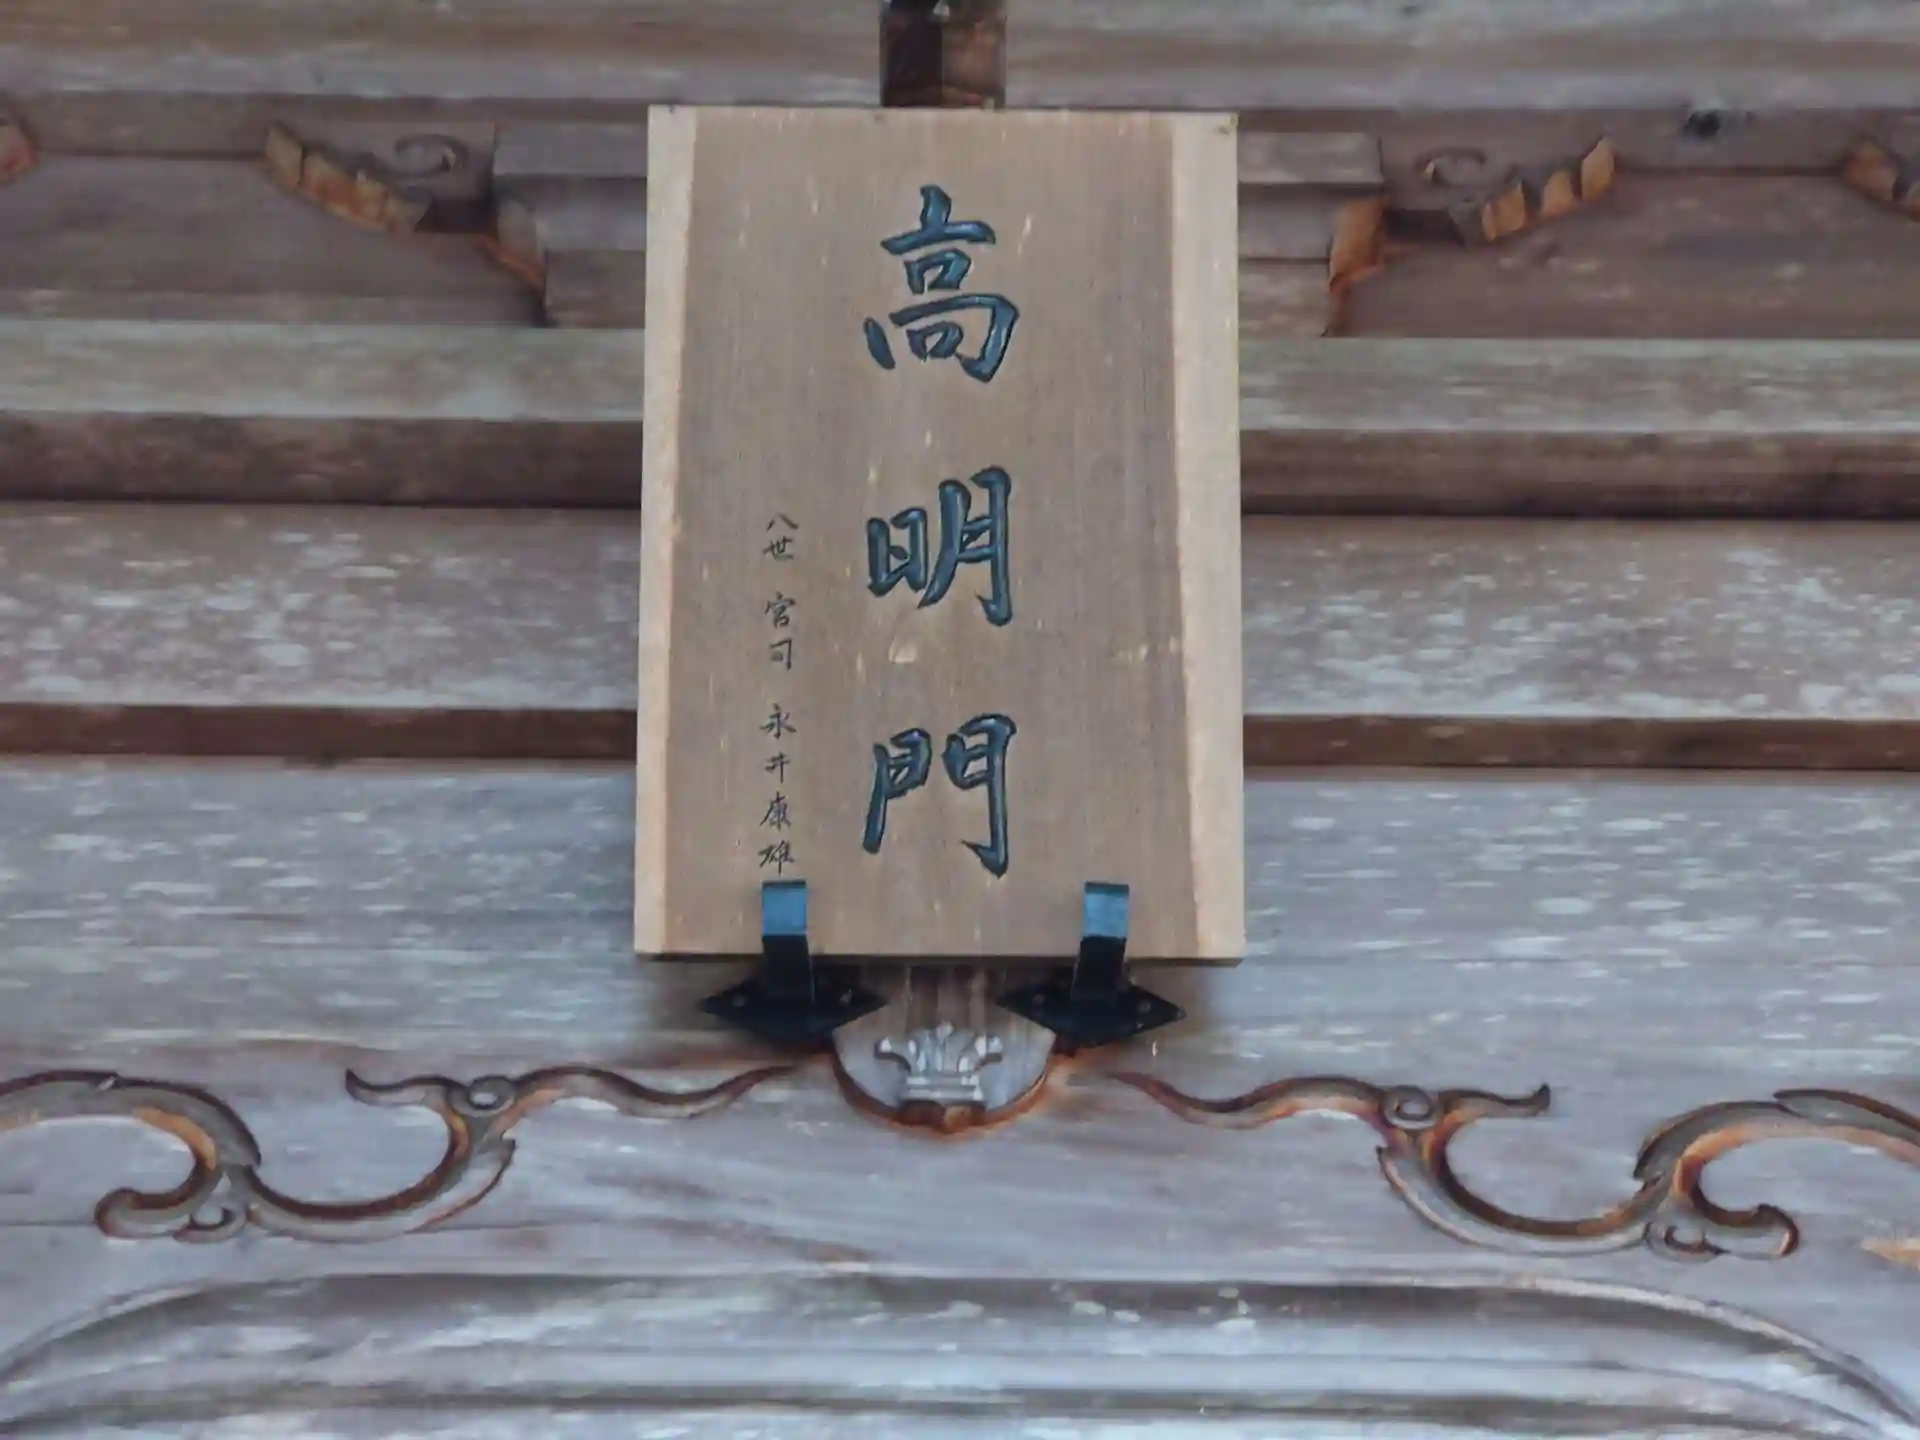 高明門
八世 宮司 永井康雄